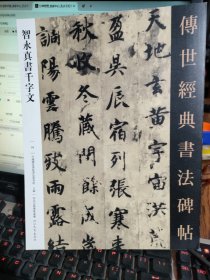 傳世經典書法碑帖
天地玄黃宇宙洪荒
盈昃辰宿列張寒來
秋收冬藏閏餘成歲
調陽雲騰致雨露結
智永真書千字文